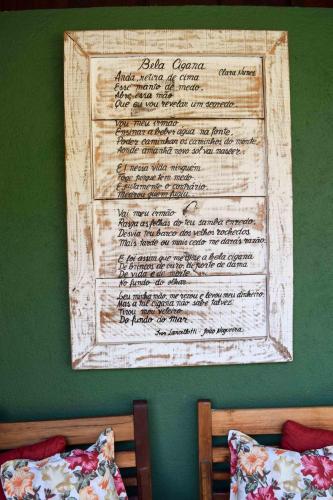 Bela Cigana
Clara Nunes
Anda, retira de cima
Esse manto de medo.
Abre essa mão
Que eu vou revelar um segredo.
Vou meu irmão
Ensinar a beber água na fonte,
Poder caminhar os caminhos do monte,
Aonde amanhã novo sol vai nascer.
E nessa vida ninguém
Foge porque tem medo.
É justamente o contrário.
Morreu quem fugiu.
Vai meu irmão
Rasga as folhas do teu samba enredo,
Desvia teu barco dos velhos rochedos.
Mais tarde ou mais cedo me darás razão.
E foi assim que me disse a bela cigana
De brincos de ouro, de porte de dama
De vida e de morte
No fundo do olhar.
Leu minha mão, me rezou e levou meu dinheiro,
Mas a tal cigana não sabe talvez.
Tirou meu veleiro
Do fundo do mar.
Ivor Lancellotti - João Nogueira